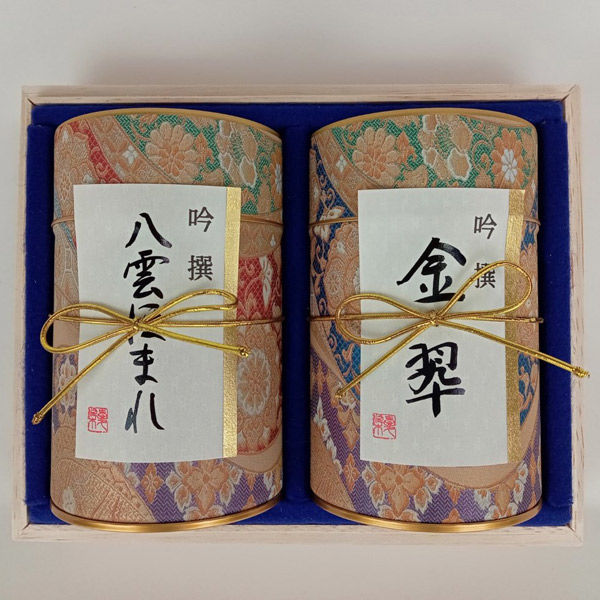 吟撰
八雲ほまれ
吟撰
金翠